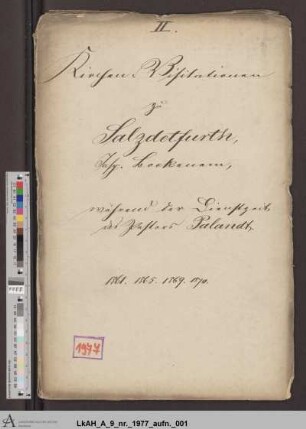 II.
Kirchen-Visitationen
zu
Salzdetfurth,
Insp. Bockenem,
während der Dienstzeit
des Pastors Palandt.
1861. 1865. 1869. 1870.
1977
LkAH_A_9_nr._1977_aufn._001